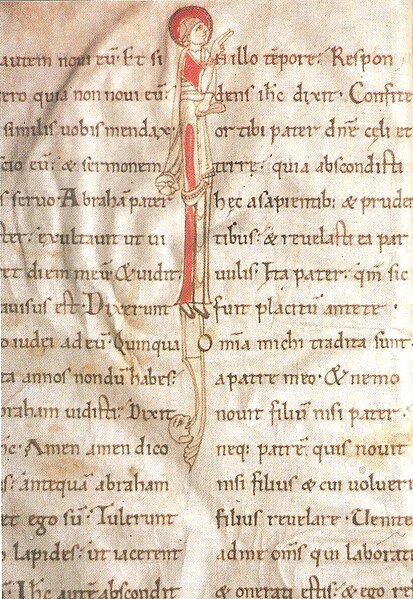 autem noui eū. Et si
ero quia non noui eū.
similis uobis mendax
cio eū. & sermonem
s seruo. Abraham pater
ter. exultauit ut ui
et diem meū. & uidit
auisus est. Dixerunt
o iudei ad eū. Quinqua
ta annos nondū habes.
braham uidisti. Dixit
hc. Amen amen dico
s. antequā abraham
et ego sū. Tulerunt
lapides. ut iacerent
Ihc autē abscondit
N illo tēpore. Respon
dens ihc dixit. Confite
or tibi pater dn̄e celi et
terre. quia abscondisti
hec a sapientib; & prude
tibus. & reuelasti ea par
uulis. Ita pater. qm̄ sic
fuit placitū ante te.
Om̄ia michi tradita sunt
a patre meo. & nemo
nouit filiū nisi pater.
neq; patrē quis nouit
nisi filius & cui uoluer
filius reuelare. Uenite
ad me om̄s qui laborat
& onerati estis. & ego re